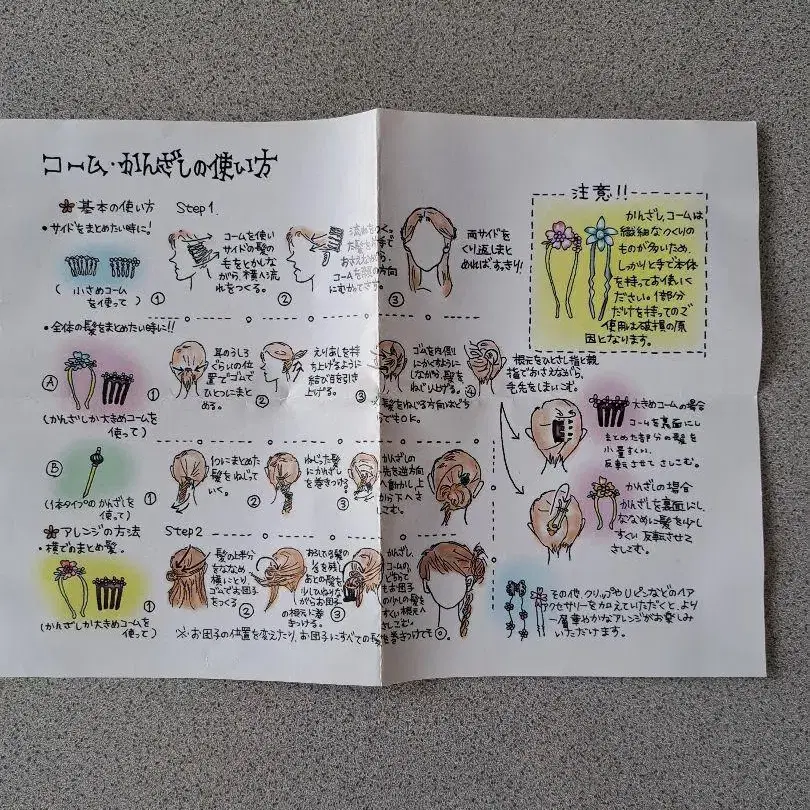 コーム・かんざしの使い方
基本の使い方 Step1.
・サイドをまとめたい時に!
(小さめコーム
を使って)
①
コームを使い
サイドの髪の
毛をとかしな
がら、横に流
れをつくる。
②
おさえながら、
③
両サイドを
くり返しまと
めればすっきり!
・全体の髪をまとめたい時に!!
Ⓐ
(かんざしか大きめコームを
使って)
①
耳のうしろ
ぐらいの位
置でゴムで
ひとつにまと
める。
②
えりあしを持
ち上げるように
結び目を引き
上げる。
③
ゴムを内側
にかくすように
しながら、髪を
ねじり上げる。
髪をねじる方向はどち
らでもOK。
④
根元をひとさし指と親
指でおさえながら、
毛先をしまいこむ。
大きめコームの場合
コームを裏面にし
まとめた部分の髪を
少量すくい、
反転させて さしこむ。
かんざしの場合
かんざしを裏面にし、
ななめに髪を少し
すくい 反転させて
さしこむ。
Ⓑ
(1本タイプの かんざしを
使って)
①
1つにまとめた
髪をねじって
いく。
②
ねじった髪
にかんざし
を巻きつける。
③
かんざしの
先を逆方向
へ動かし上
から下へさ
しこむ。
アレンジの方法 Step2
・横でのまとめ髪.
(かんざしか大きめコームを
使って)
①
髪の上半分
をななめ
横にとり、
ゴムでお団子
をつくる
②
おろしている髪の
を残し
あとの髪を
少しずねじりな
がらお団子
の根元に巻
きつける。
③
かんざし、
コームの
お団子
の少しの髪を
すくい根元へ
さしこむ。
※お団子の位置を変えたり、お団子にすべての髪を巻きつけても◎。
注意!!
かんざし、コームは
繊細なつくりの
ものが多いため、
しっかりと手で本体
を持ってお使いく
ださい。1部分
だけを持ってのご
使用は破損の原
因となります。
その他 クリップやUピンなどのヘア
アクセサリーを加えていただくと、より
一層華やかなアレンジがお楽しみ
いただけます。